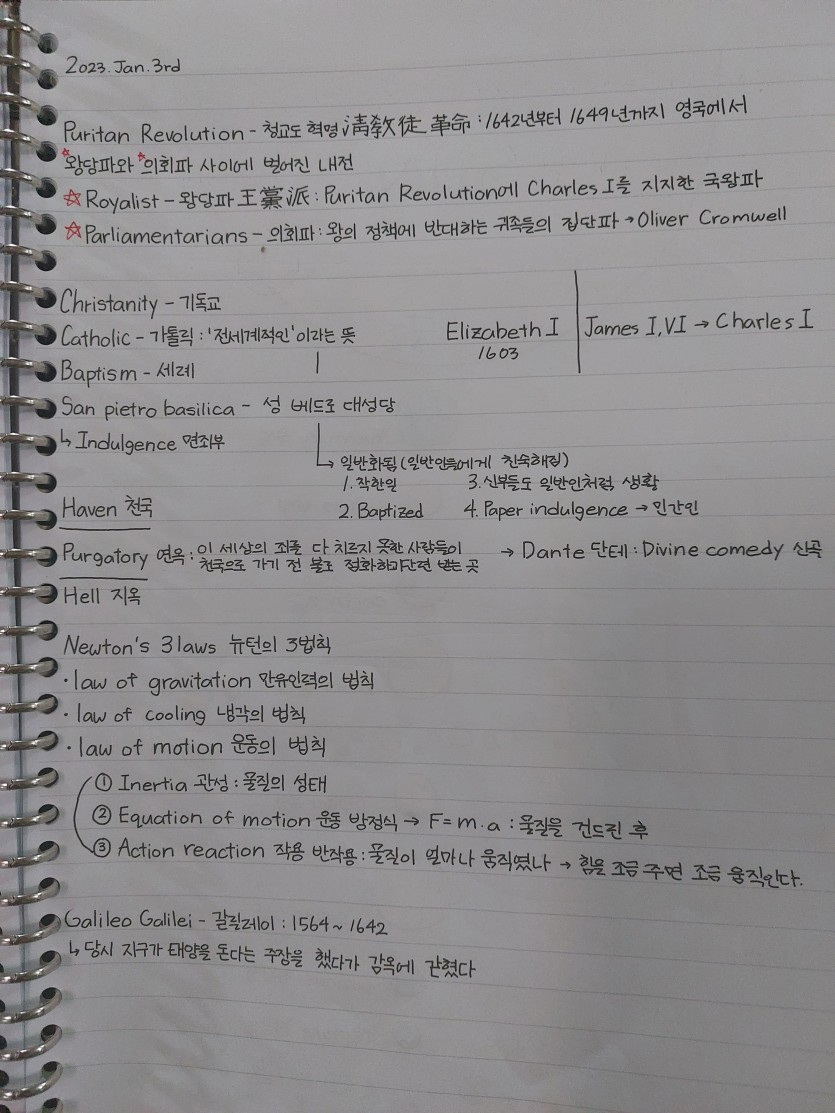 2023.Jan.3rd
Puritan Revolution - 청교도 혁명 淸敎徒 革命 : 1642년부터 1649년까지 영국에서
☆왕당파와 ☆의회파 사이에 벌어진 내전
☆Royalist - 왕당파 王黨派 : Puritan Revolution에 Charles I를 지지한 국왕파
☆Parliamentarians - 의회파 : 왕의 정책에 반대하는 귀족들의 집단파 → Oliver Cromwell
Christanity - 기독교
Catholic - 가톨릭 : '전세계적인'이라는 뜻
Elizabeth I | James I,VI → Charles I
1603
Baptism - 세례
San pietro basilica - 성 베드로 대성당
↳ Indulgence 면죄부
↳ 일반화됨 (일반인들에게 친숙해짐)
1. 착한일 3. 신부들도 일반인처럼 생활
2. Baptized 4. Paper indulgence → 민간인
Haven 천국
Purgatory 연옥 : 이 세상의 죄를 다 치르지 못한 사람들이
천국으로 가기 전 불로 정화하 받는 곳
→ Dante 단테 : Divine comedy 신곡
Hell 지옥
Newton's 3 laws 뉴턴의 3법칙
· law of gravitation 만유인력의 법칙
· law of cooling 냉각의 법칙
· law of motion 운동의 법칙
① Inertia 관성 : 물질의 성태
② Equation of motion 운동 방정식 → F=m·a : 물질을 건드린 후
③ Action reaction 작용 반작용 : 물질이 얼마나 움직였나 → 힘을 조금 주면 조금 움직인다.
Galileo Galilei - 갈릴레이 : 1564 ~ 1642
↳ 당시 지구가 태양을 돈다는 주장을 했다가 감옥에 갇혔다